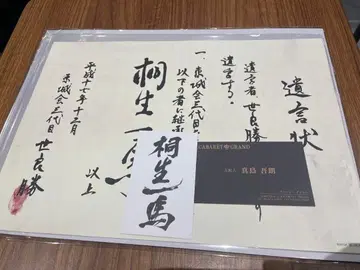 遺言状
遺言者 世良勝
遺言する。
一、東城会三代目
以下の者に継
桐生一
以上
平成十七年十二月
東城会三代目 世良 勝
桐生一馬
CABARET GRAND
真島 吾朗